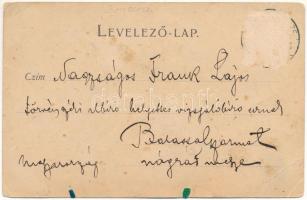 LEVELEZŐ-LAP.
Czím Nagyságos Frank Lajos
törvényszéki albíró helyettes vizsgálóbíró urnak
Balassagyarmat
Magyarország nógrád megye